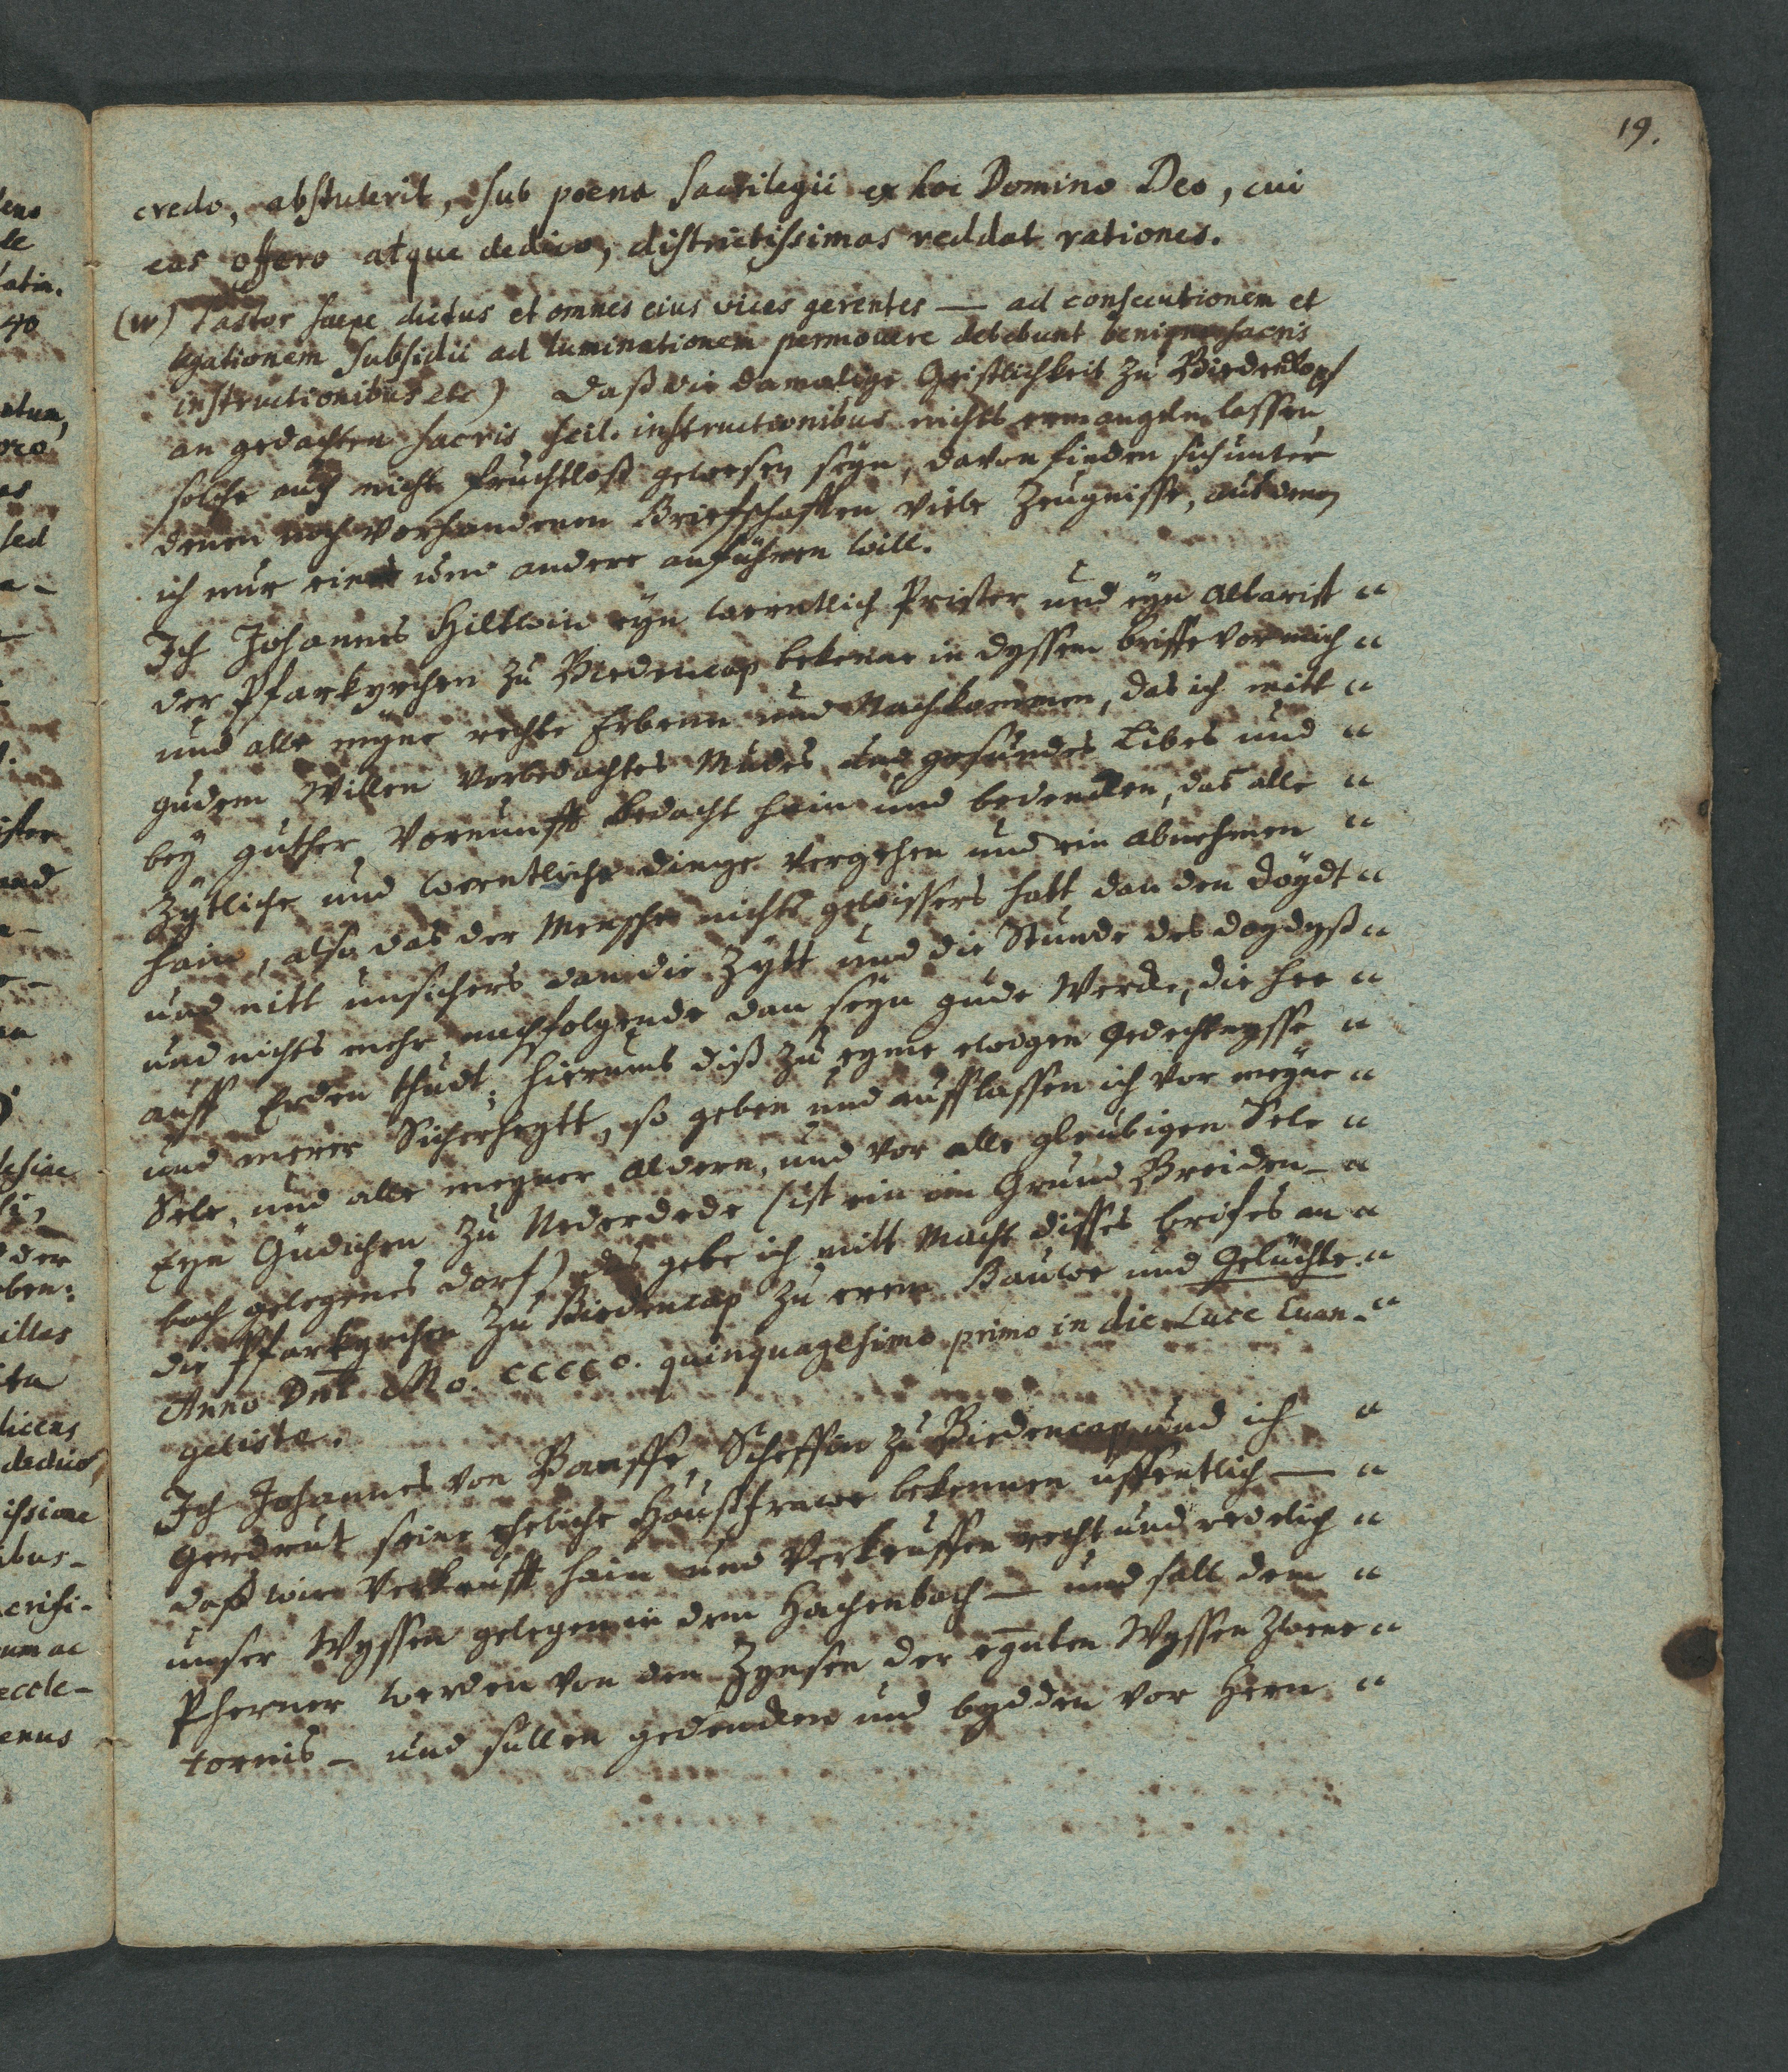 19.
credo, abstulerit, sub poena sacrilegii ex hoc Domino Deo, cui
eas offero atque dedico, districtissimas reddat rationes.
(w) Pastor saepe dictus et omnes eius vices gerentes — ad consecutionem et
legationem subsidii ad luminationem permovere debebunt benignis sacris
instructionibus etc) Daß die damalige Geistlichkeit zu Biedenkopf
an gedachten sacris scil. instructionibus nichts ermangeln lassen,
solche auch nicht fruchtloß gewesen seyn, davon finden sich unter
denen noch vorhandenen Briefschafften viele Zeugnisse, aus denen
ich nur eines und andere anführen will.
Ich Johannes Hiltwin eyn werntlich Prister und eyn Altarist "
der Pfarkyrchen zu Biedencap bekenne in dyssem briffe vor mich "
und alle meyne rechte Erbenn und Nachkommen, das ich mitt "
gudem Willen vorbedachtes Mudes und gesundes Libes und "
bey guther Vornunfft bedacht hain und bedencken, das alle "
Zytliche und werntliche dinge vergehen und ein abnehmen "
hain, also das der Mensche nichts gewissers hatt dan den doydt "
und nitt unsichers dan die Zytt und die Stunde des doydyß "
und nichts mehr nachfolgende dan seyn gude Wercke, die hee "
auff Erden thudt; hierumb diß zu eyme ewigen Gedechtnysse "
und merer Sicherheytt, so geben und aufflassen ich vor meyne "
Sele, und alle meyner Aldern, und vor alle gleubigen Sele "
Eyn Gudichen zu Nederdede (ist ein im Grund Breiden- "
bach gelegenes dorf) das gebe ich mitt Macht disses brifes an "
die Pfarkyrchen zu Biedencap zu erem Bauwe und Geluchte. "
Anno Dni Mo. CCCCo. quinquagesimo primo in die Luce Evan- "
geliste.
Ich Johannes von Banffe, Scheffin zu Biedencap und ich "
Gerdrut seine eheliche Haußfrawe bekennen uffentlich — "
daß wir verkaufft hain und verkeuffen recht und redelich "
unser Wyssen gelegen in dem Hachenbach — und sall dem "
Pherner werden von den Zynsen der egnten Wyssen zwene "
tornis — und sullen gedencken und bydden vor Hern "